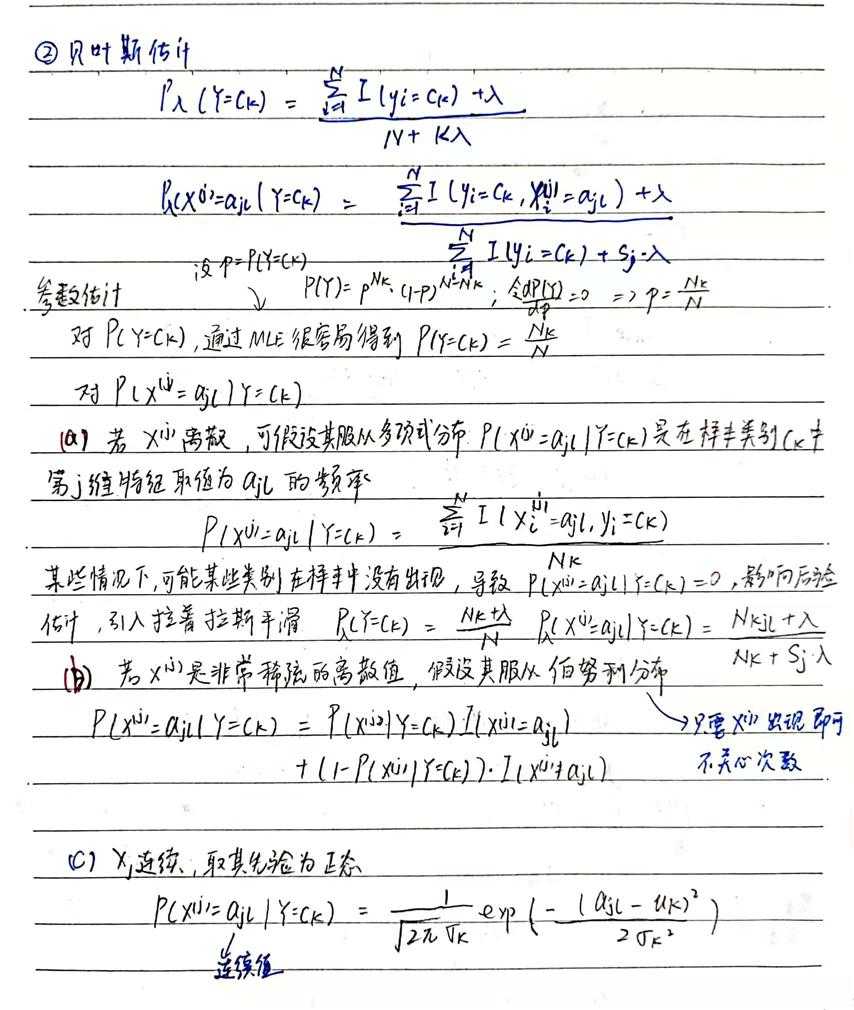 ② 贝叶斯估计
Pλ(Y=Ck) = (∑_{i=1}^{N} I(yi=Ck)+λ) / (N+Kλ)
Pλ(X^(j)=ajl|Y=Ck) = (∑_{i=1}^{N} I(yi=Ck, Xi^(j)=ajl)+λ) / (∑_{i=1}^{N} I(yi=Ck)+Sj·λ)
设 P=P(Y=Ck)
参数估计 ↘ P(Y)=P^{Nk}·(1-P)^{N-Nk}; 令 dP(Y)/dp=0 => P=Nk/N
对 P(Y=Ck),通过 MLE 很容易得到 P(Y=Ck) = Nk/N
对 P(X^(j)=ajl|Y=Ck)
(a) 若 X^(j) 离散,可假设其服从多项式分布 P(X^(j)=ajl|Y=Ck)是在样本类别Ck中
第j维特征取值为 ajl 的频率
P(X^(j)=ajl|Y=Ck) = (∑_{i=1}^{N} I(Xi^(j)=ajl, yi=Ck)) / Nk
某些情况下,可能某些类别在样本中没有出现,导致 P(X^(j)=ajl|Y=Ck)=0,影响后验
估计,引入拉普拉斯平滑 Pλ(Y=Ck) = (Nk+λ)/N Pλ(X^(j)=ajl|Y=Ck) = (Nkjl+λ)/(Nk+Sj·λ)
(b) 若 X^(j) 是非常稀疏的离散值,假设其服从伯努利分布
P(X^(j)=ajl|Y=Ck) = P(X^(j)|Y=Ck)I(X^(j)=ajl) → 只要 X^(j) 出现即可
+(1-P(X^(j)|Y=Ck))·I(X^(j)≠ajl) 不关心次数
(C) Xj连续,取其先验为正态
P(X^(j)=ajl|Y=Ck) = 1/(√(2π) σk) exp(-(ajl-uk)²/(2σk²))
连续值